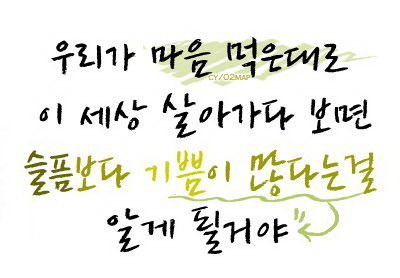 우리가 마음 먹은대로
CY/02MAP
이 세상 살아가다 보면
슬픔보다 기쁨이 많다는걸
알게 될거야"